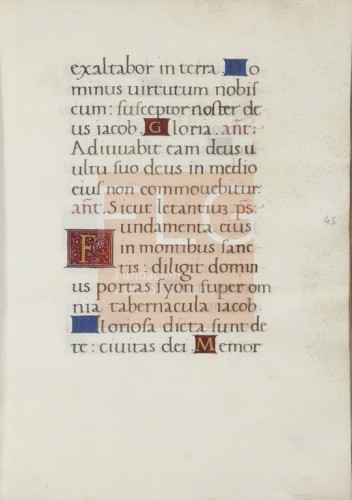 exaltabor in terra. Do
minus uirtutum nobis
cum: susceptor noster de
us iacob. Gloria. añt:
Adiuuabit eam deus u
ultu suo deus in medio
eius non commouebitur.
añt. Sicut letantiuz. ps.
Fundamenta eius
in montibus sanc
tis: diligit domin
us portas syon super om
nia tabernacula iacob
Gloriosa dicta sunt de
te: ciuitas dei. Memor
FLG
Fundación